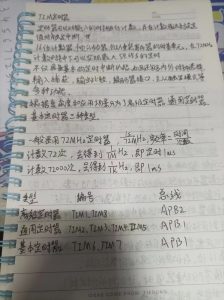 TIM定时器
定时器可以对输入的时钟进行计数,并在计数值达到设定值时触发中断
16位计数器、预分频器、自动重装寄存器的时基单元,在72MHz
计数时钟下可以实现最大59.65s的定时
不仅具备基本的定时中断功能,而且还包含内外时钟源选择、
输入捕获、输出比较、编码器接口、主从触发模式等
多种功能
根据复杂度和应用场景分为了高级定时器、通用定时器、
基本定时器三种类型
一般采用72MHz定时器
计数72次,会得到 Hz,即定时1μs
计数72000次,会得到 Hz,即1ms
类型 编号 总线
高级定时器 TIM1,TIM8 APB2
通用定时器 TIM2,TIM3,TIM4,TIM5 APB1
基本定时器 TIM6,TIM7 APB1